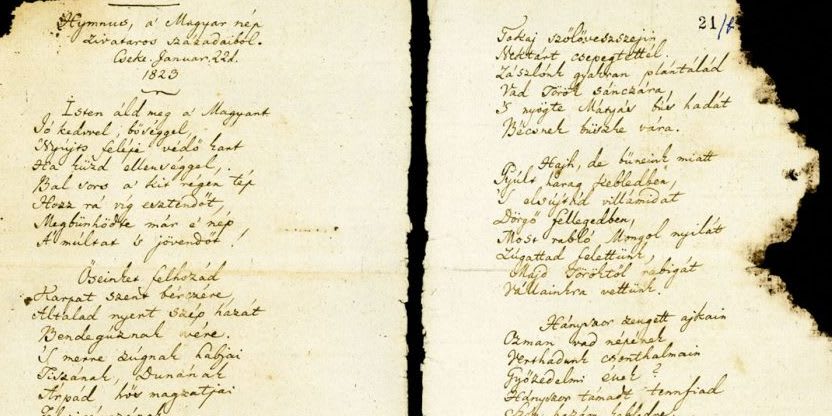 Hymnus, a' Magyar nép
zivataros századaiból.
Cseke. Januar. 22d.
1823
Isten áld meg a' Magyart
Jó kedvvel, bőséggel,
Nyújts feléje védő kart
Ha küzd ellenséggel,
Bal sors a' kit régen tép
Hozz rá víg esztendőt,
Megbűnhödte már e' nép
A' multat 's jövendőt!
Őseinket felhozád
Kárpát szent bérczére,
Általad nyert szép hazát
Bendegúznak vére.
'S merre zúgnak habjai
Tiszának, Dunának
Árpád hős magzatjai
21/b
Tokaj szőlővesszejin
Nektárt csepegtettél.
Zászlónk gyakran plántálád
Vad Török sánczára,
'S nyögte Mátyás bús hadát
Bécsnek büszke vára.
Hajh, de bűneink miatt
Gyúlt harag kebledben,
'S elsújtád villámidat
Dörgő fellegedben,
Most rabló Mongol nyilát
Zúgattad felettünk,
Majd Töröktől rabigát
Vállainkra vettünk.
Hányszor zengett ajkain
Ozman vad népének
Vert hadunk csonthalmain
Győzedelmi ének?
Hányszor támadt tennfiad
Szép hazám kebledre